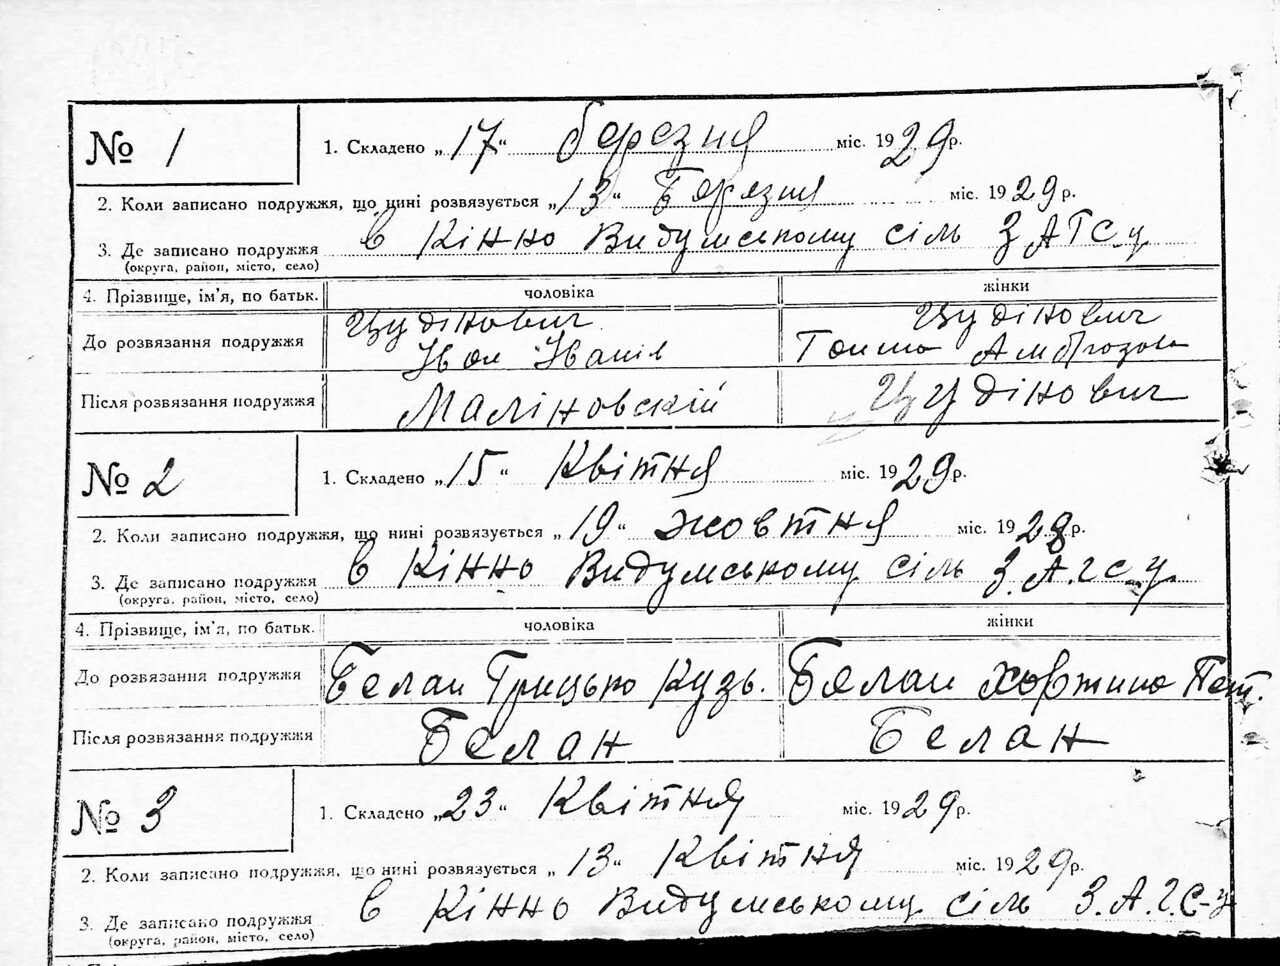 № 1
1. Складено „17“ березня міс. 1929 р.
2. Коли записано подружжя, що нині розвязується „13“ Березня міс. 1929 р.
3. Де записано подружжя в Кінно Видумському сіль ЗАГСу
(округа, район, місто, село)
4. Прізвище, ім'я, по батьк. чоловіка жінки
До розвязання подружжя Цудінович Іван Іванів Цудінович
Після розвязання подружжя Маліновскій Цудінович
№ 2
1. Складено „15“ Квітня міс. 1929 р.
2. Коли записано подружжя, що нині розвязується „19“ жовтня міс. 1928 р.
3. Де записано подружжя в Кінно Видумському сіль З.А.Г.С-у
(округа, район, місто, село)
4. Прізвище, ім'я, по батьк. чоловіка жінки
До розвязання подружжя Белан Грицько Кузь. Белан Пет.
Після розвязання подружжя Белан Белан
№ 3
1. Складено „23“ Квітня міс. 1929 р.
2. Коли записано подружжя, що нині розвязується „13“ Квітня міс. 1929 р.
3. Де записано подружжя в Кінно Видумському сіль З.А.Г.С-у
(округа, район, місто, село)